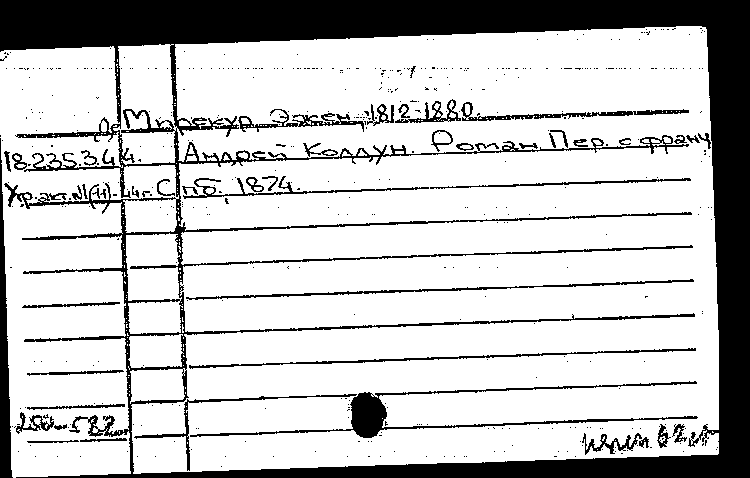 Де Мирекур, Эжен, 1812-1880.
18.235.3.44. Андрей Колдун. Роман. Пер. с франц
Хр. акт. №1(11)-44 г. Спб, 1874.
250-582
62